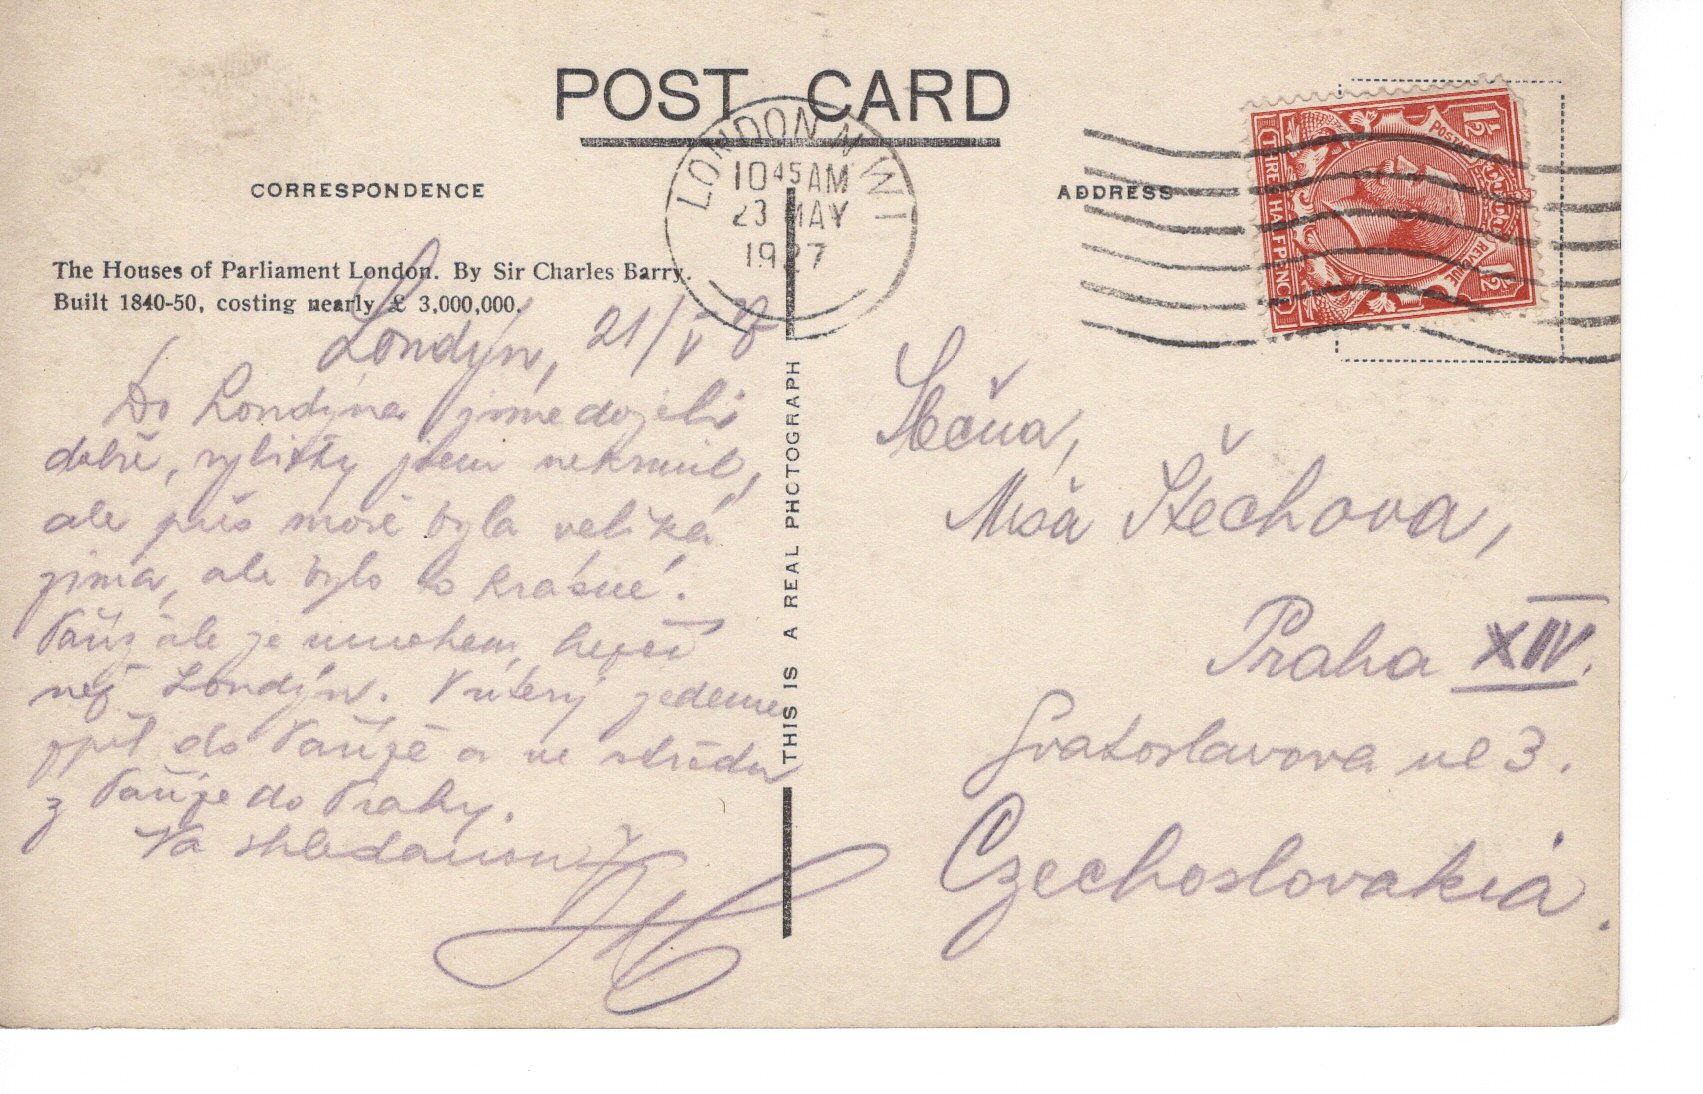 POST CARD
LONDON N.W.1
10 45 AM
23 MAY
1927
CORRESPONDENCE
ADDRESS
POSTAGE
REVENUE
1½
1½
THREE HALFPENCE
The Houses of Parliament London. By Sir Charles Barry.
Built 1840-50, costing nearly £ 3,000,000.
Londýn, 21/V
Do Londýna jsme dojeli
dobře, rybičky jsem nekrmil,
ale přes moře byla veliká
zima, ale bylo to krásné.
Paříž ale je mnohem lepší
než Londýn. V úterý jedeme
zpět do Paříže a ve středu
z Paříže do Prahy.
Na shledanou
THIS IS A REAL PHOTOGRAPH
Slečna,
Máša Štěchova,
Praha XIV.
Svatoslavova ul 3.
Czechoslovakia.